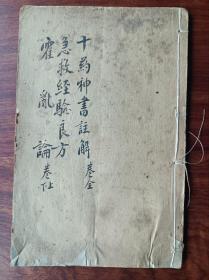 十药神書註解 卷全
急救經驗良方
霍亂論 卷上下